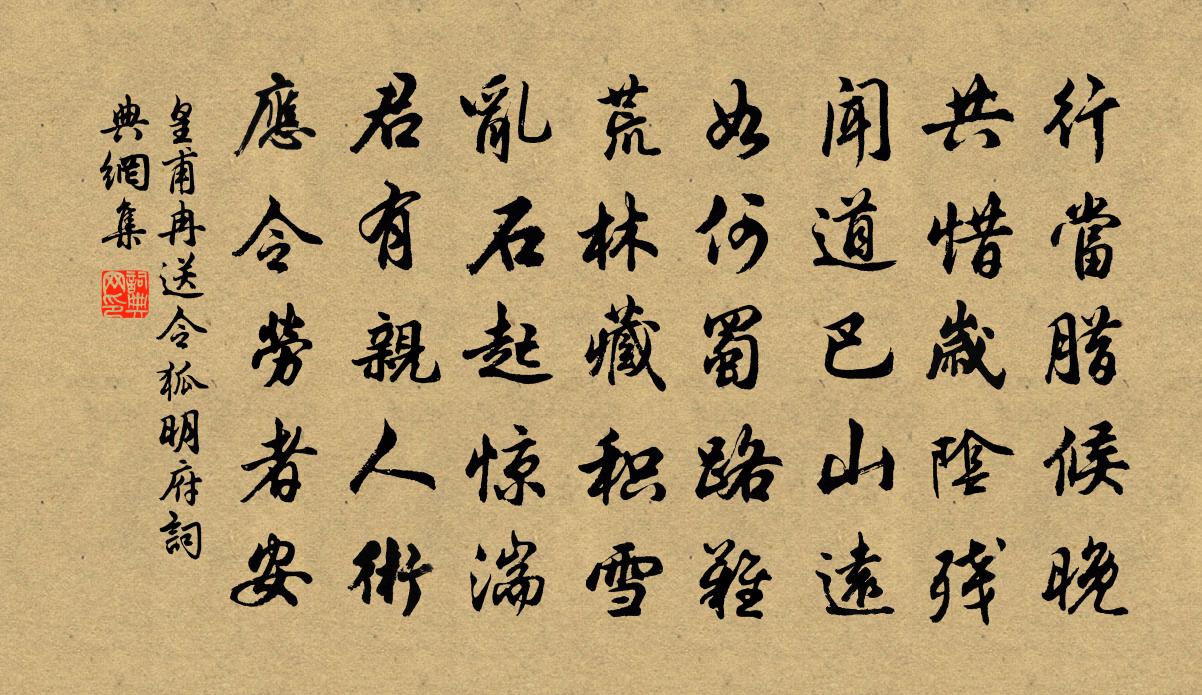 行當腊候晚
共惜歲陰残
闻道巴山遠
如何蜀路難
荒林藏积雪
亂石起惊湍
君有親人術
應令勞者安
皇甫冉送令狐明府詞
典網集
詞典网印